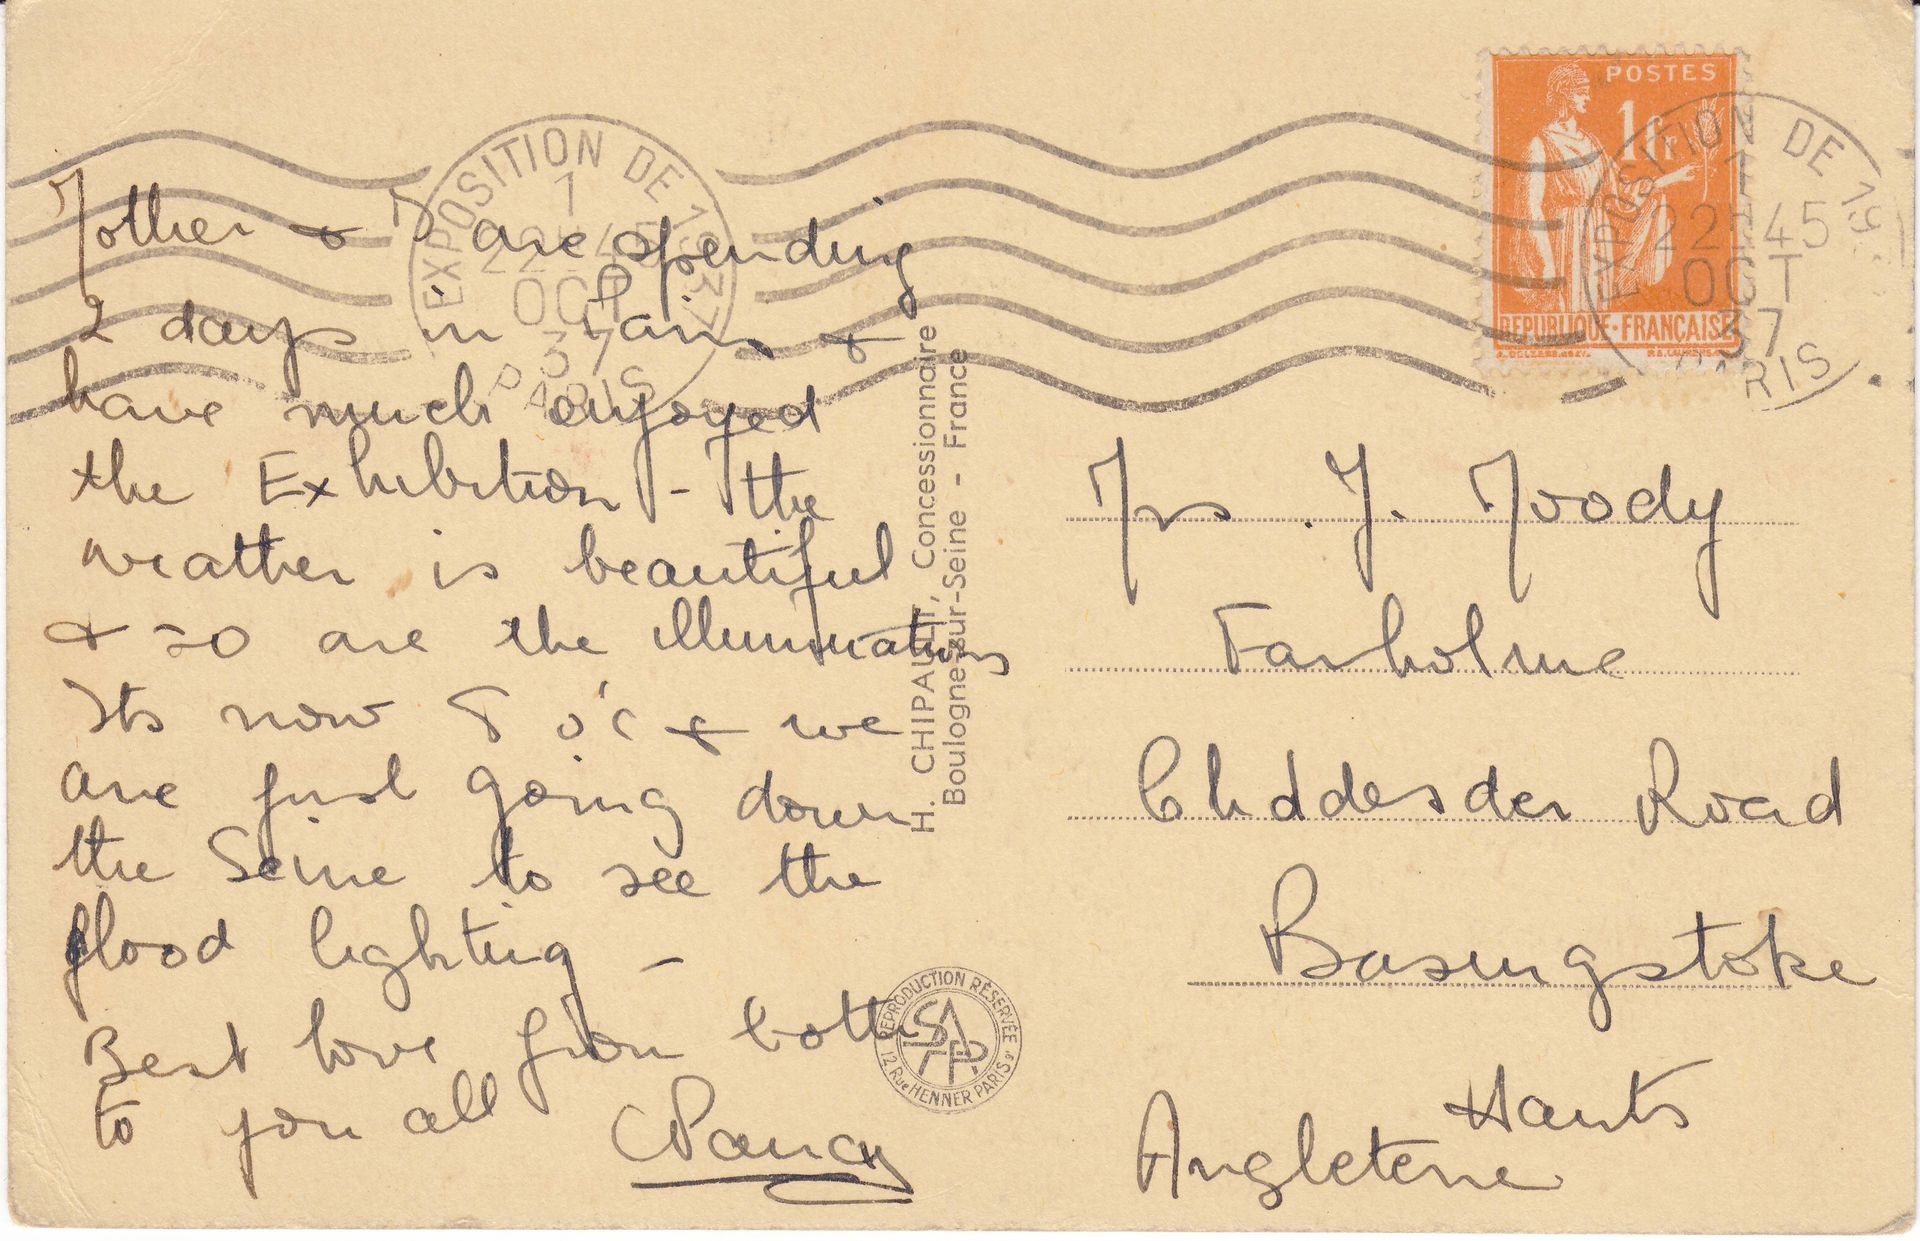 EXPOSITION DE 1937
1
22H45
OCT
37
PARIS
POSTES
1fr
REPUBLIQUE·FRANÇAISE
EXPOSITION DE 19
1
22H45
OCT
37
PARIS
Mother & I are spending
2 days in Paris &
have much enjoyed
the Exhibition - the
weather is beautiful
& so are the illuminations
Its now 8 o'c & we
are just going down
the Seine to see the
flood lighting -
Best love from both
to you all
Nancy
H. CHIPAULT, Concessionnaire
Boulogne-sur-Seine - France
REPRODUCTION RÉSERVÉE
SAPP
12, Rue HENNER PARIS 9e
Mrs. J. Moody
Fairholme
Cliddesden Road
Basingstoke
Hants
Angleterre